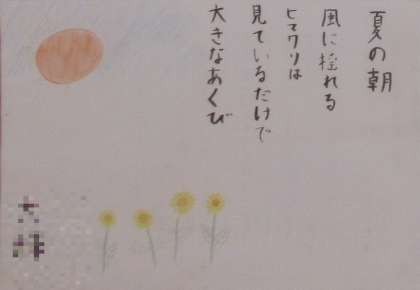 夏の朝
風に揺れる
ヒマワリは
見ているだけで
大きなあくび